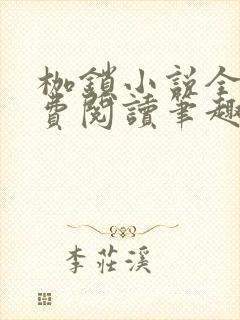 枷鎖小説全
費閱讀筆趣
李莊溪